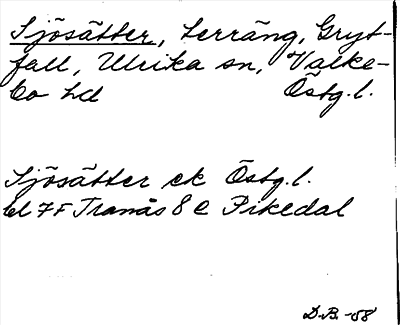 Sjösätter, Terräng, Gryt-
fall, Ulrika sn, Valke-
bo hd Östg.l.
Sjösätter ek Östg.l.
bl 7F Tranås 8 e Pikedal
D.B. -58